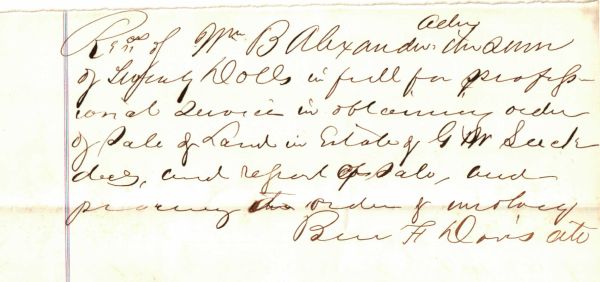 Adm
Recd of Wm B Alexander the sum
of Twenty Dolls in full for profess-
ional service in obtaining order
of Sale of Land in Estate of G W
decd, and report of Sale, and
procuring the order of
Ben F Davis atto